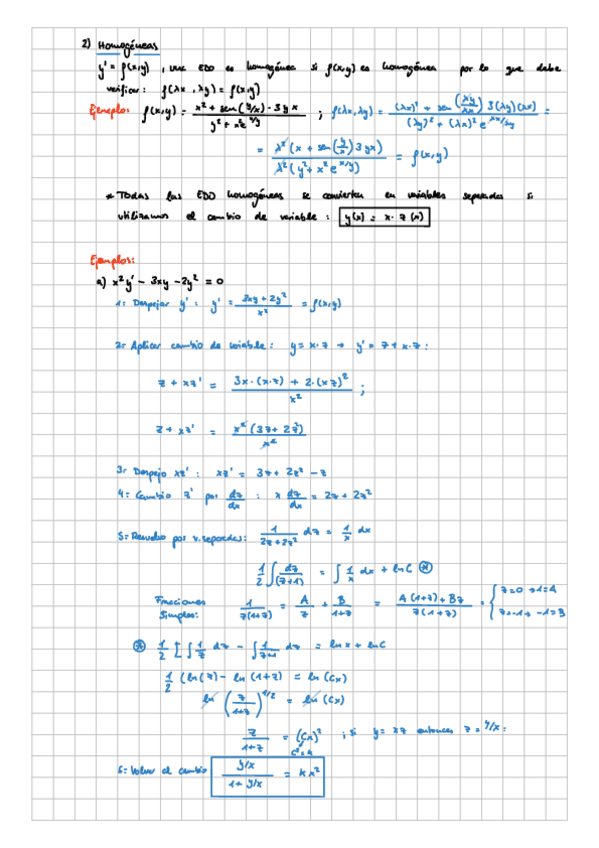 2) Homogéneas
y' = f(x,y) , una EDO es homogénea si f(x,y) es homogénea por lo que debe
verificar: f(λx, λy) = f(x,y)
Ejemplo: f(x,y) = (x² + sen(y/x) - 3yx)/(y² + x²e^(x/y)) ; f(λx,λy) = ((λx)² + sen(λy/λx) 3(λy)(λx))/((λy)² + (λx)² e^(λx/λy)) =
= λ²(x + sen(y/x) 3yx)/λ²(y² + x²e^(x/y)) = f(x,y)
* Todas las EDO homogéneas se convierten en variables separadas si
utilizamos el cambio de variable : y(x) = x· z(x)
Ejemplos:
a) x²y' - 3xy - 2y² = 0
1: Despejar y' : y' = (3xy + 2y²)/x² = f(x,y)
2: Aplicar cambio de variable : y = x·z → y' = z + x·z :
z + xz' = (3x·(x·z) + 2·(xz)²)/x² ;
z + xz' = x²(3z + 2z²)/x²
3: Despejo xz' : xz' = 3z + 2z² - z
4: Cambio z' por dz/dx : x dz/dx = 2z + 2z²
5: Resuelvo por v. separadas: 1/(2z+2z²) dz = 1/x dx
1/2 ∫ dz/(z+1) = ∫ 1/x dx + ln C ⊛
Fracciones Simples: 1/(z(1+z)) = A/z + B/(1+z) = (A(1+z) + Bz)/(z(1+z)) = { z=0 → 1=A
z=-1 → -1=B
⊛ 1/2 [∫ 1/z dz - ∫ 1/(z+1) dz = ln x + ln C
1/2 (ln(z) - ln(1+z) = ln(Cx)
ln (z/(1+z))^(1/2) = ln(Cx)
z/(1+z) = (Cx)² ; si y = xz entonces z = y/x :
C²=k
6: Volver al cambio (y/x)/(1 + y/x) = kx²